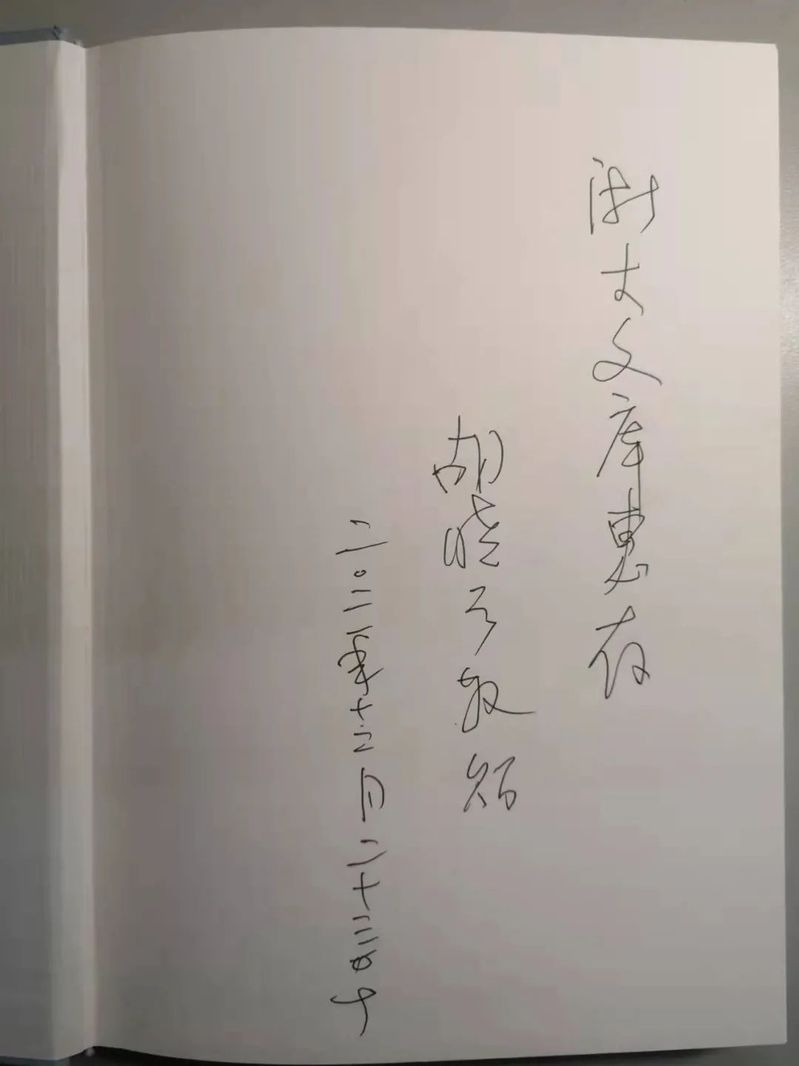 浙大文库惠存
胡晓云敬
二〇二年十二月二十三日